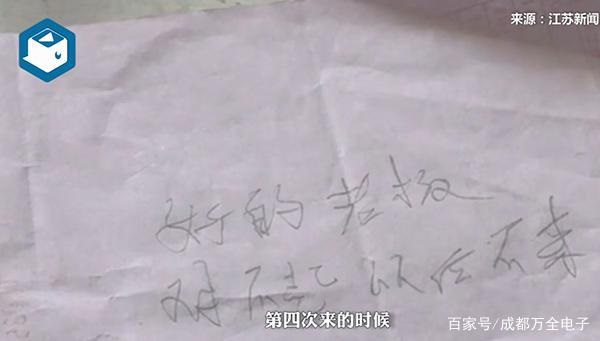 来源：江苏新闻
好的老板
对不起以后不来
第四次来的时候
百家号/成都万全电子